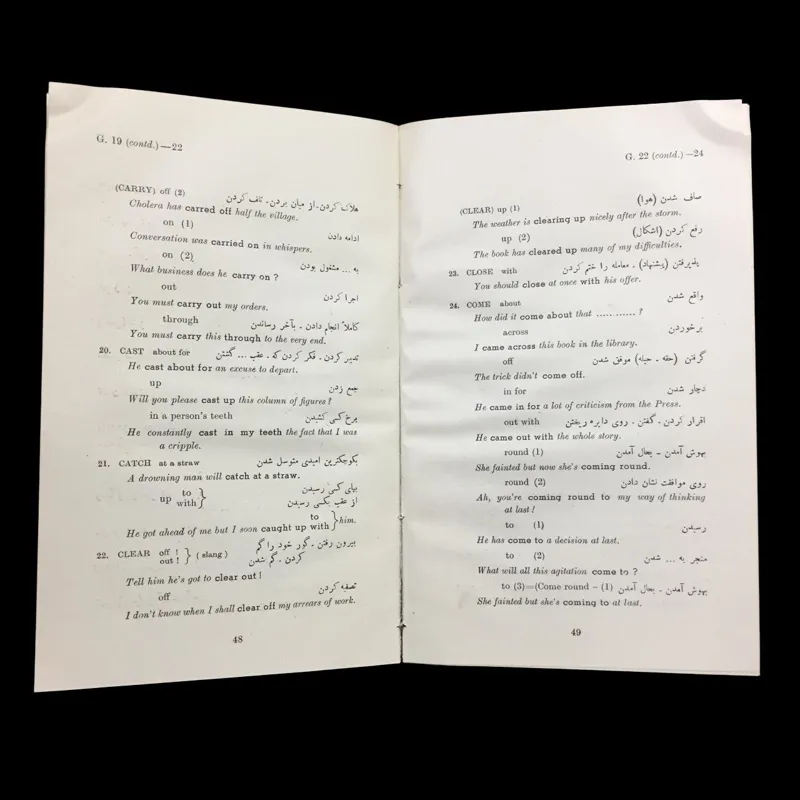 G. 19 (contd.)—22
(CARRY) off (2) هلاک کردن- از میان بردن- تلف کردن
Cholera has carred off half the village.
on (1) ادامه دادن
Conversation was carried on in whispers.
on (2) به ... مشغول بودن
What business does he carry on ?
out اجرا کردن
You must carry out my orders.
through کاملاً انجام دادن - بآخر رساندن
You must carry this through to the very end.
20. CAST about for تدبیر کردن - فکر کردن که - عقب ... گشتن
He cast about for an excuse to depart.
up جمع زدن
Will you please cast up this column of figures ?
in a person's teeth برخ کسی کشیدن
He constantly cast in my teeth the fact that I was
a cripple.
21. CATCH at a straw بکوچکترین امیدی متوسل شدن
A drowning man will catch at a straw.
up to بپای کسی رسیدن
with از عقب بکسی رسیدن
to
He got ahead of me but I soon caught up with him.
22. CLEAR off ! بیرون رفتن - گور خود را گم
out ! (slang) کردن - گم شدن
Tell him he's got to clear out !
off تصفیه کردن
I don't know when I shall clear off my arrears of work.
48
G. 22 (contd.) —24
(CLEAR) up (1) صاف شدن (هوا)
The weather is clearing up nicely after the storm.
up (2) رفع کردن (اشکال)
The book has cleared up many of my difficulties.
23. CLOSE with پذیرفتن (پیشنهاد) - معامله را ختم کردن
You should close at once with his offer.
24. COME about واقع شدن
How did it come about that ........... ?
across برخوردن
I came across this book in the library.
off گرفتن (حقه - حیله) موفق شدن
The trick didn't come off.
in for دچار شدن
He came in for a lot of criticism from the Press.
out with اقرار کردن - گفتن - روی دایره ریختن
He came out with the whole story.
round (1) بهوش آمدن - بحال آمدن
She fainted but now she's coming round.
round (2) روی موافقت نشان دادن
Ah, you're coming round to my way of thinking
at last !
to (1) رسیدن
He has come to a decision at last.
to (2) منجر به ... شدن
What will all this agitation come to ?
to (3)=(Come round – (1) بهوش آمدن - بحال آمدن
She fainted but she's coming to at last.
49